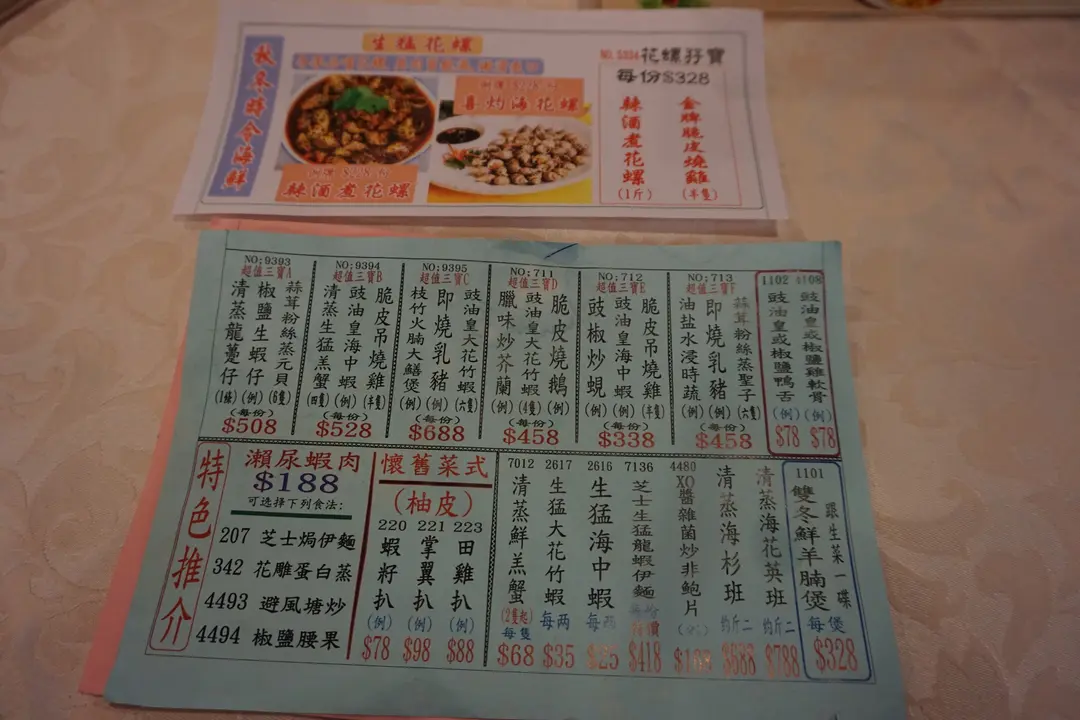 秋冬時令海鮮
生猛花螺
辣酒煮花螺
喜灼湯花螺
NO.5334花螺孖寶
每份$328
辣酒煮花螺
(1斤)
金牌脆皮燒雞
(半隻)
NO:9393
超值三寶A
清蒸龍躉仔
(1條)
椒鹽生蝦仔
(例)
蒜茸粉絲蒸元貝
(6隻)
(每份)
$508
NO:9394
超值三寶B
清蒸生猛羔蟹
(四隻)
豉油皇海中蝦
(例)
脆皮吊燒雞
(半隻)
(每份)
$528
NO:9395
超值三寶C
枝竹火腩大鱔煲
(例)
即燒乳豬
(例)
豉油皇大花竹蝦
(六隻)
(每份)
$688
NO:711
超值三寶D
臘味炒芥蘭
(例)
豉油皇大花竹蝦
(4隻)
脆皮燒鵝
(例)
(每份)
$458
NO:712
超值三寶E
豉椒炒蜆
(例)
豉油皇海中蝦
(例)
脆皮吊燒雞
(半隻)
(每份)
$338
NO:713
超值三寶F
油盐水浸時蔬
(例)
即燒乳豬
(例)
蒜茸粉絲蒸聖子
(六隻)
(每份)
$458
1102
豉油皇或椒鹽鴨舌
(例)
$78
4108
豉油皇或椒鹽雞軟骨
(例)
$78
特色推介
瀨尿蝦肉
$188
可选择下列食法:
207 芝士焗伊麵
342 花雕蛋白蒸
4493 避風塘炒
4494 椒鹽腰果
懷舊菜式
(柚皮)
220
蝦籽扒
(例)
$78
221
掌翼扒
(例)
$98
223
田雞扒
(例)
$88
7012
清蒸鮮羔蟹
(2隻起)
每隻
$68
2617
生猛大花竹蝦
每两
$35
2616
生猛海中蝦
每两
$25
7136
芝士生猛龍蝦伊麵
$418
4480
XO醬雜菌炒非鮑片
清蒸海杉班
約斤二
$688
清蒸海花英班
約斤二
$788
1101
雙冬鮮羊腩煲
跟生菜一碟
每煲
$328